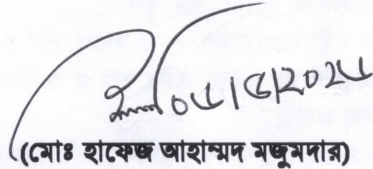 ০৫।৫।২০২৫
(মোঃ হাফেজ আহাম্মদ মজুমদার)